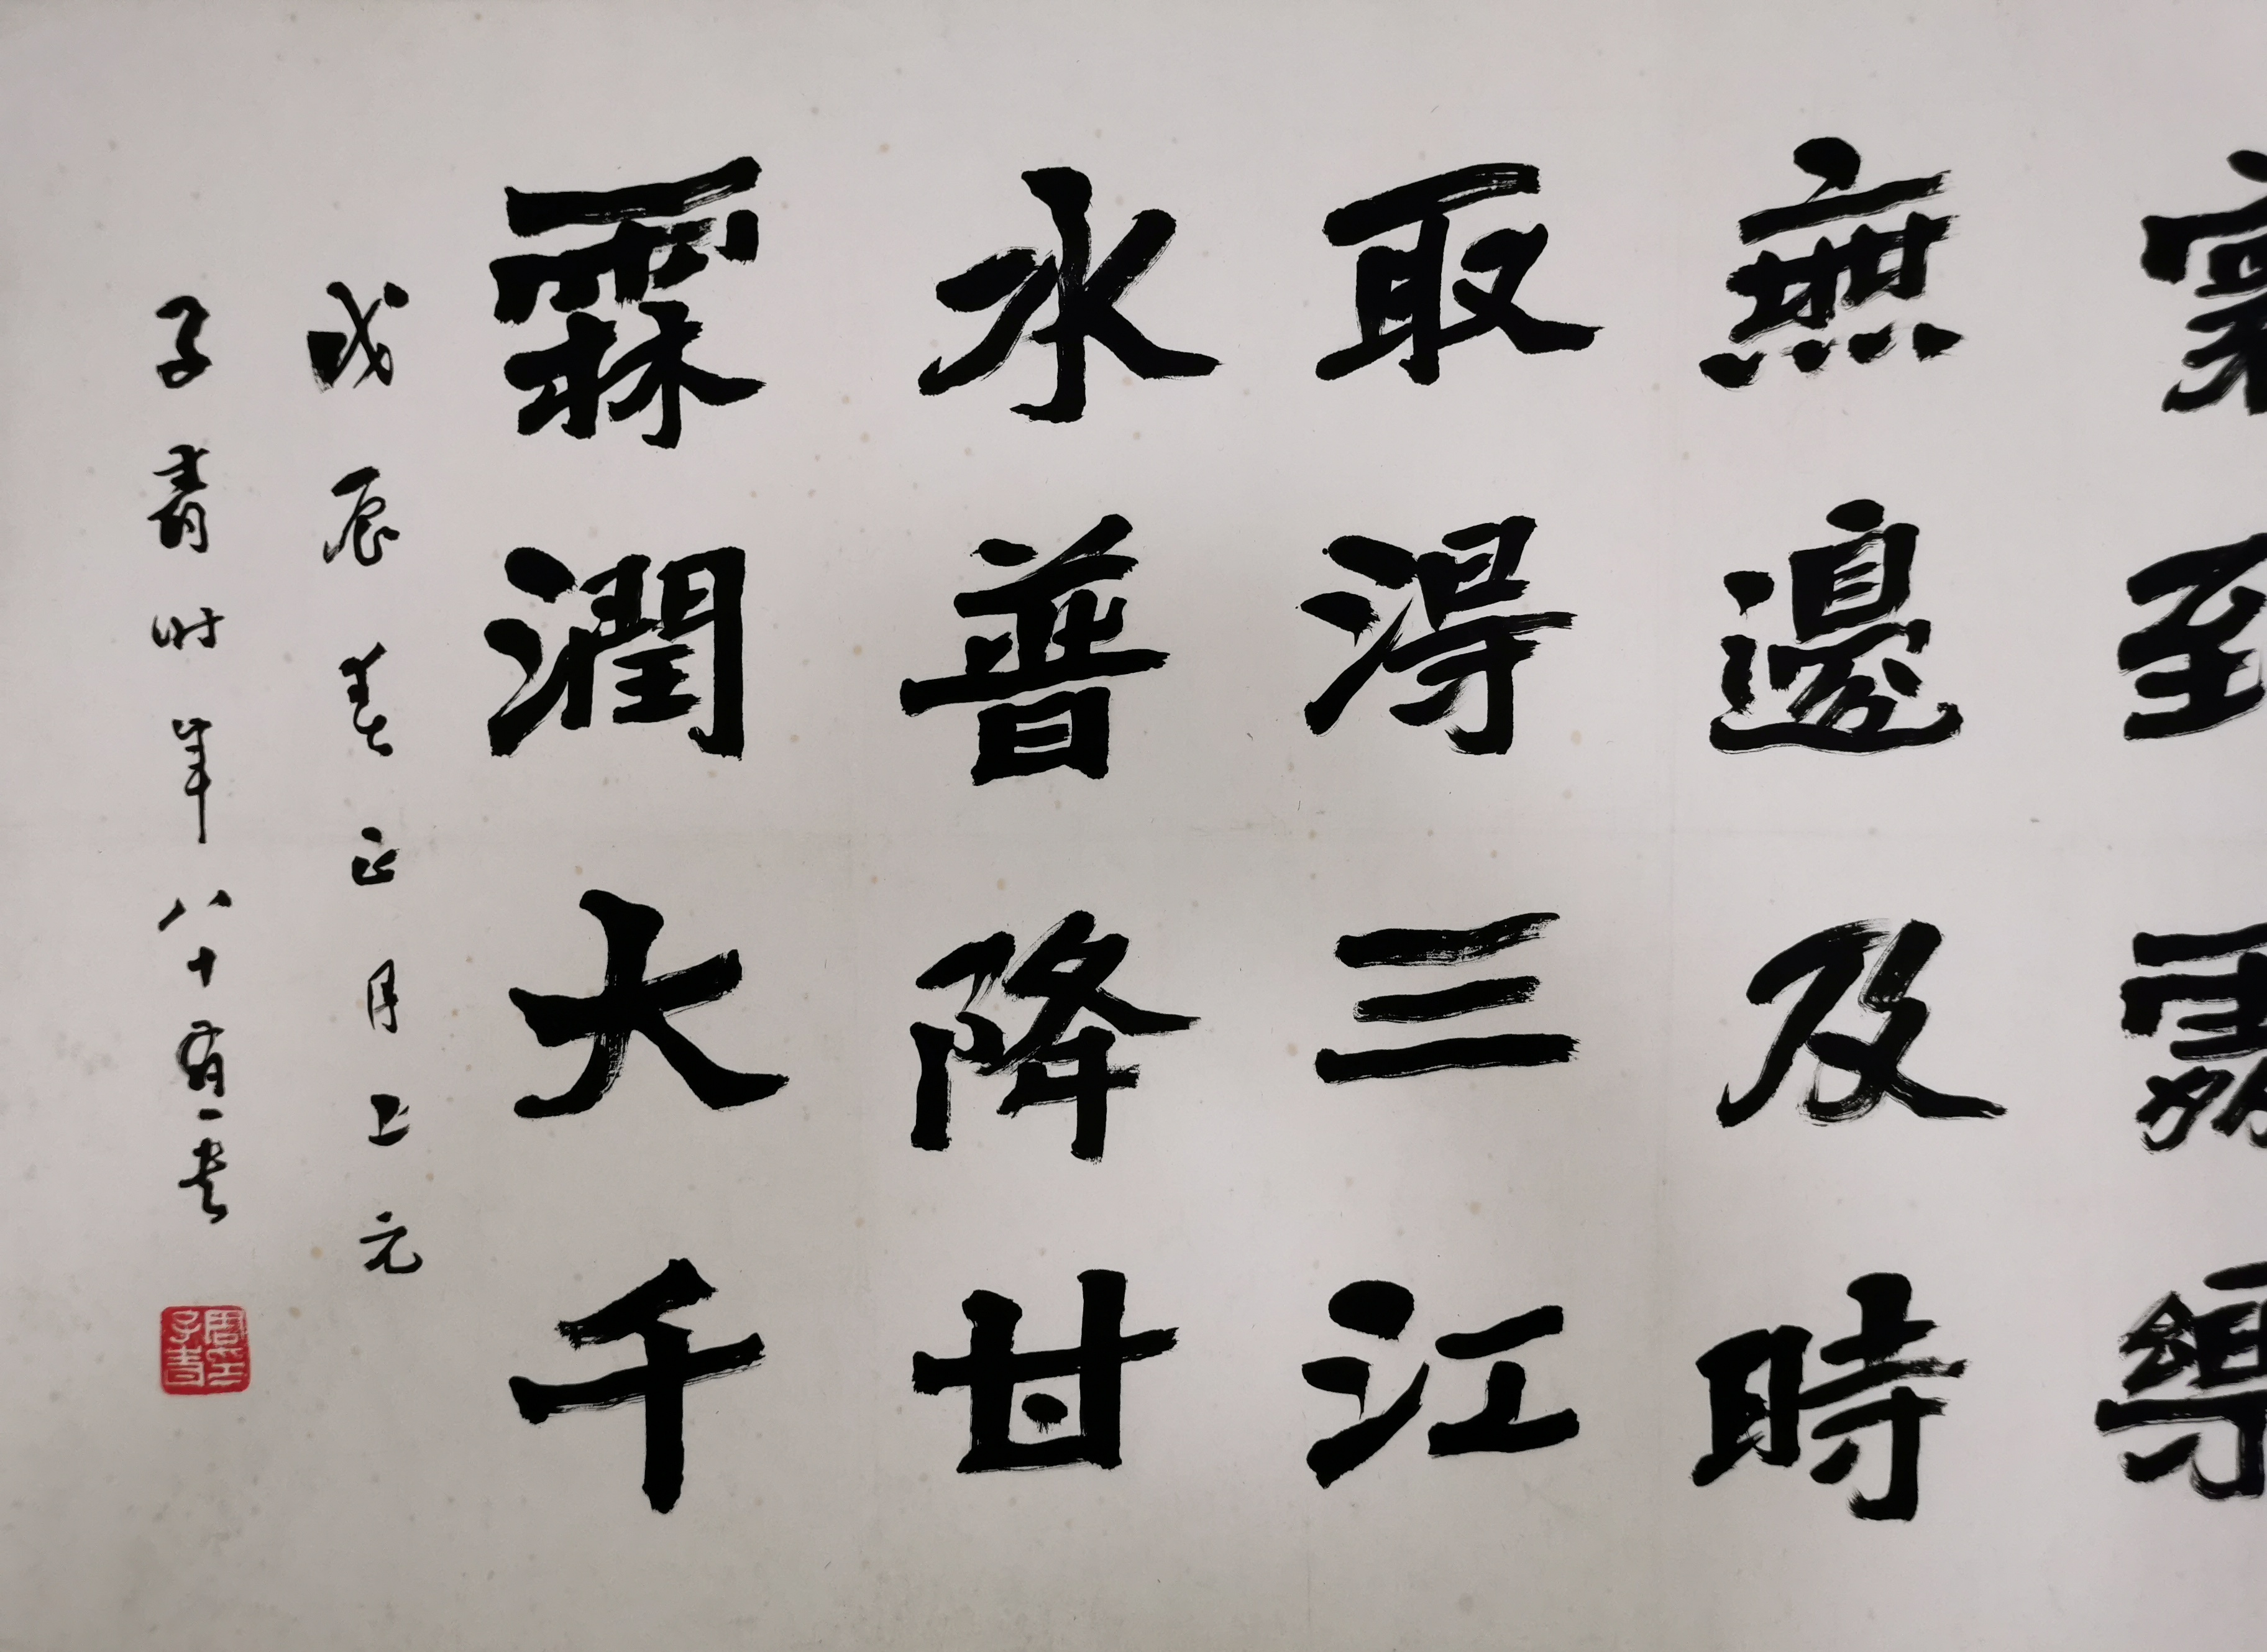 無邊及時
取淂三江
水普降甘
霖潤大千
戊辰春正月上元
子青時年八十有一書